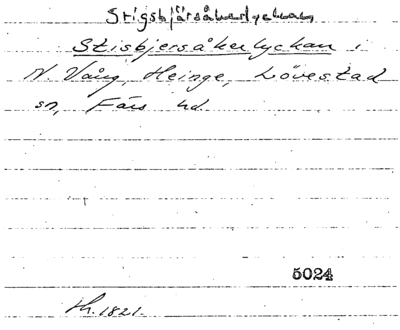 Stigsbjärsåkerlyckan
Stisbjersåkerlyckan i
N. Vång, Heinge, Lövestad
sn, Färs hd.
5024
Th. 1821.